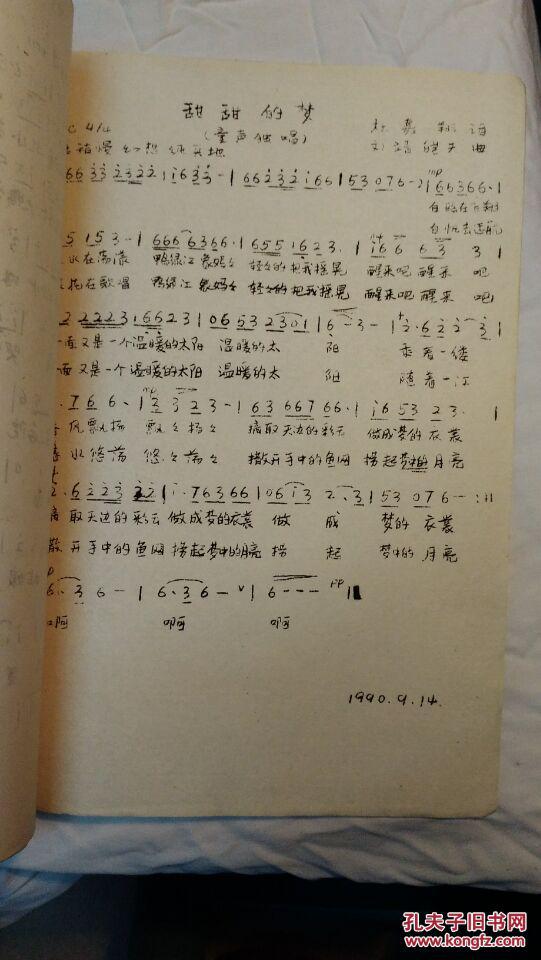 甜甜的梦
C 4/4 (童声独唱) 词
稍慢 幻想 地 曲
66 33 2322 | 1633 - | 66232166 | 53076 - | 66366. |
mp
5 153 - | 666 6366. | 655 1623. | 166 63 3 |
在荡漾 鸭绿江象妈々 轻々的把我摇晃 醒来吧醒来 吧
在歌唱 鸭绿江象妈々 轻々的把我摇晃 醒来吧醒来 吧
2 2223 16623 | 0653 2301 | 6 - 3 - | 2. 622 3 |
面又是一个温暖的太阳 温暖的太 阳 乘着一缕
面又是一个温暖的太阳 温暖的太 阳 随着一江
. 766 - | 2323 - | 63 66766. | 1653 23. |
风飘扬 飘々扬々 摘取天边的彩云 做成梦的衣裳
水悠荡 悠々荡々 撒开手中的鱼网 捞起梦中的月亮
2. 6223 22 | 1. 76366 | 0613 2. 3 | 53 076 - - :||
摘取天边的彩云 做成梦的衣裳 做 成 梦的衣裳
撒开手中的鱼网 捞起梦中的月亮 捞 起 梦中的月亮
p
6. 3 6 - | 6. 3 6 - v | 6 - - - pp ||
啊 啊 啊
1990.9.14.
孔夫子旧书网
www.kongfz.com